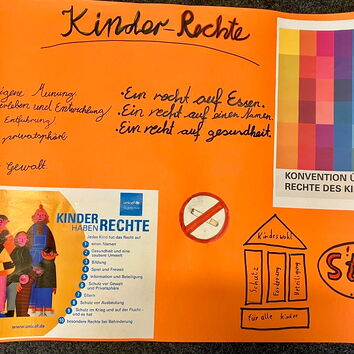 Kinder Rechte
eigene Meinung.
erleben und Entwicklung
Entführung
privatsphäre
Gewalt.
. Ein recht auf Essen.
. Ein recht auf einen Namen.
. Ein recht auf gesundheit.
KONVENTION Ü
RECHTE DES KI
unicef
KINDER
HABEN RECHTE
Jedes Kind hat das Recht auf
1 einen Namen
2 Gesundheit und eine
saubere Umwelt
3 Bildung
4 Spiel und Freizeit
5 Information und Beteiligung
6 Schutz vor Gewalt
und Privatsphäre
7 Eltern
8 Schutz vor Ausbeutung
9 Schutz im Krieg und auf der Flucht -
und es hat
10 besondere Rechte bei Behinderung
www.unicef.de
Kindeswohl
Schutz
Förderung
Beteiligung
für alle Kinder